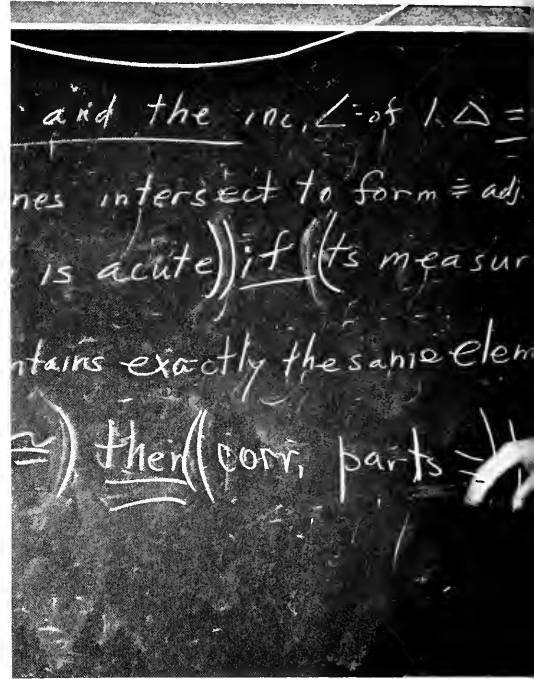 and the inc. ∠ of 1 △ =
nes intersect to form ≅ adj.
is acute)) if ((ts measur
ntains exactly the same elem
≅) then ((corr. parts